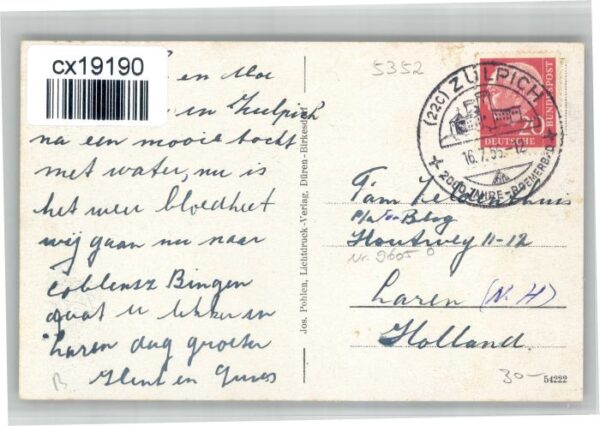 cx19190
en Moe
en Zulpich
na een mooie tocht
met water, nu is
het weer bloedheet
wij gaan nu naar
Coblensz Bingen
gaat u lekker in
Laren dag groeten
en
B.
Jos. Pohlen, Lichtdruck-Verlag, Düren-Birkesdorf
5352
(22c) ZÜLPICH
16.7.55.-12
2000 JAHRE-ROEMERBAD
20
DEUTSCHE BUNDESPOST
Fam
p/a
Houtweg 11-12
Nr. 9605
Laren (N.H)
Holland.
30-
54222